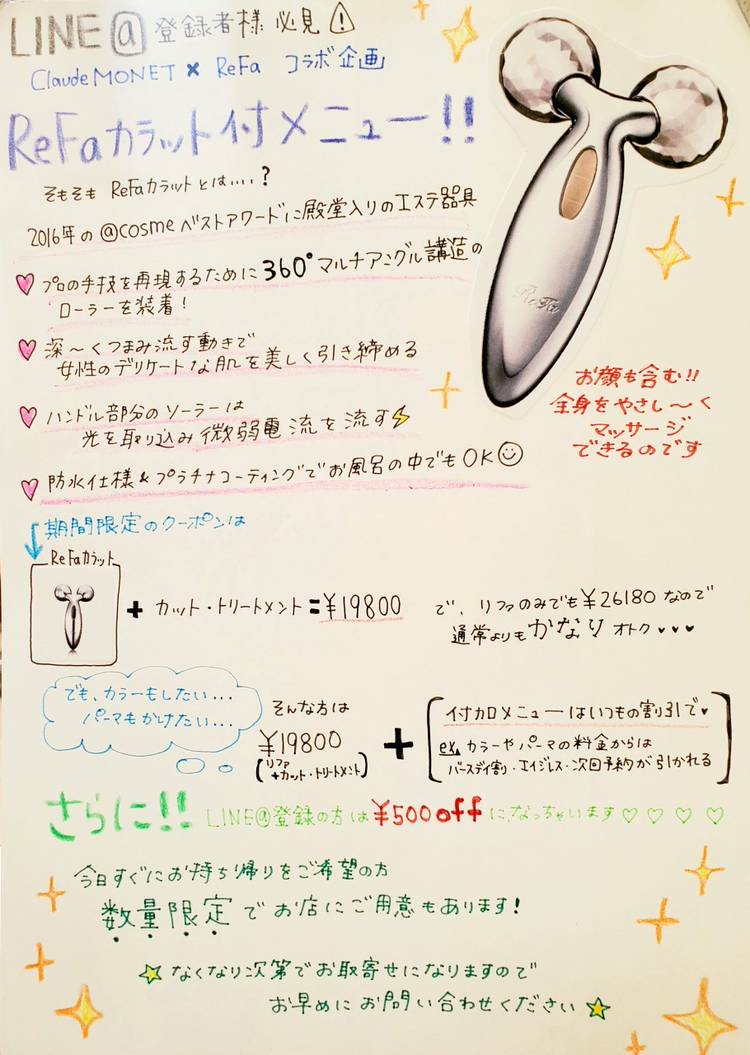 LINE@登録者様 必見⚠
Claude MONET × ReFa コラボ企画
ReFaカラット付メニュー!!
そもそも ReFaカラットとは…?
2016年の@cosmeベストアワードに殿堂入りのエステ器具
♥ プロの手技を再現するために360°マルチアングル講造の
ローラーを装着!
♥ 深〜くつまみ流す動きで
女性のデリケートな肌を美しく引き締める
♥ ハンドル部分のソーラーは
光を取り込み微弱電流を流す⚡
♥ 防水仕様&プラチナコーティングでお風呂の中でもOK☺
ReFa
お顔も含む!!
全身をやさし〜く
マッサージ
できるのです
↓期間限定のクーポンは
ReFaカラット
+ カット・トリートメント=¥19800
で、リファのみでも¥26180なので
通常よりもかなりオトク♥♥♥
でも、カラーもしたい...
パーマもかけたい...
そんな方は
¥19800
(リファ
+カット・トリートメント)
+
付カロメニューはいつもの割り引で♥
ex. カラーやパーマの料金からは
バースデイ割・エイジレス・次回予約が引かれる
さらに!! LINE@登録の方は¥500offになっちゃいます♡♡♡♡
今日すぐにお持ち帰りをご希望の方
数量限定でお店にご用意もあります!
☆なくなり次第でお取寄せになりますので
お早めにお問い合わせください☆